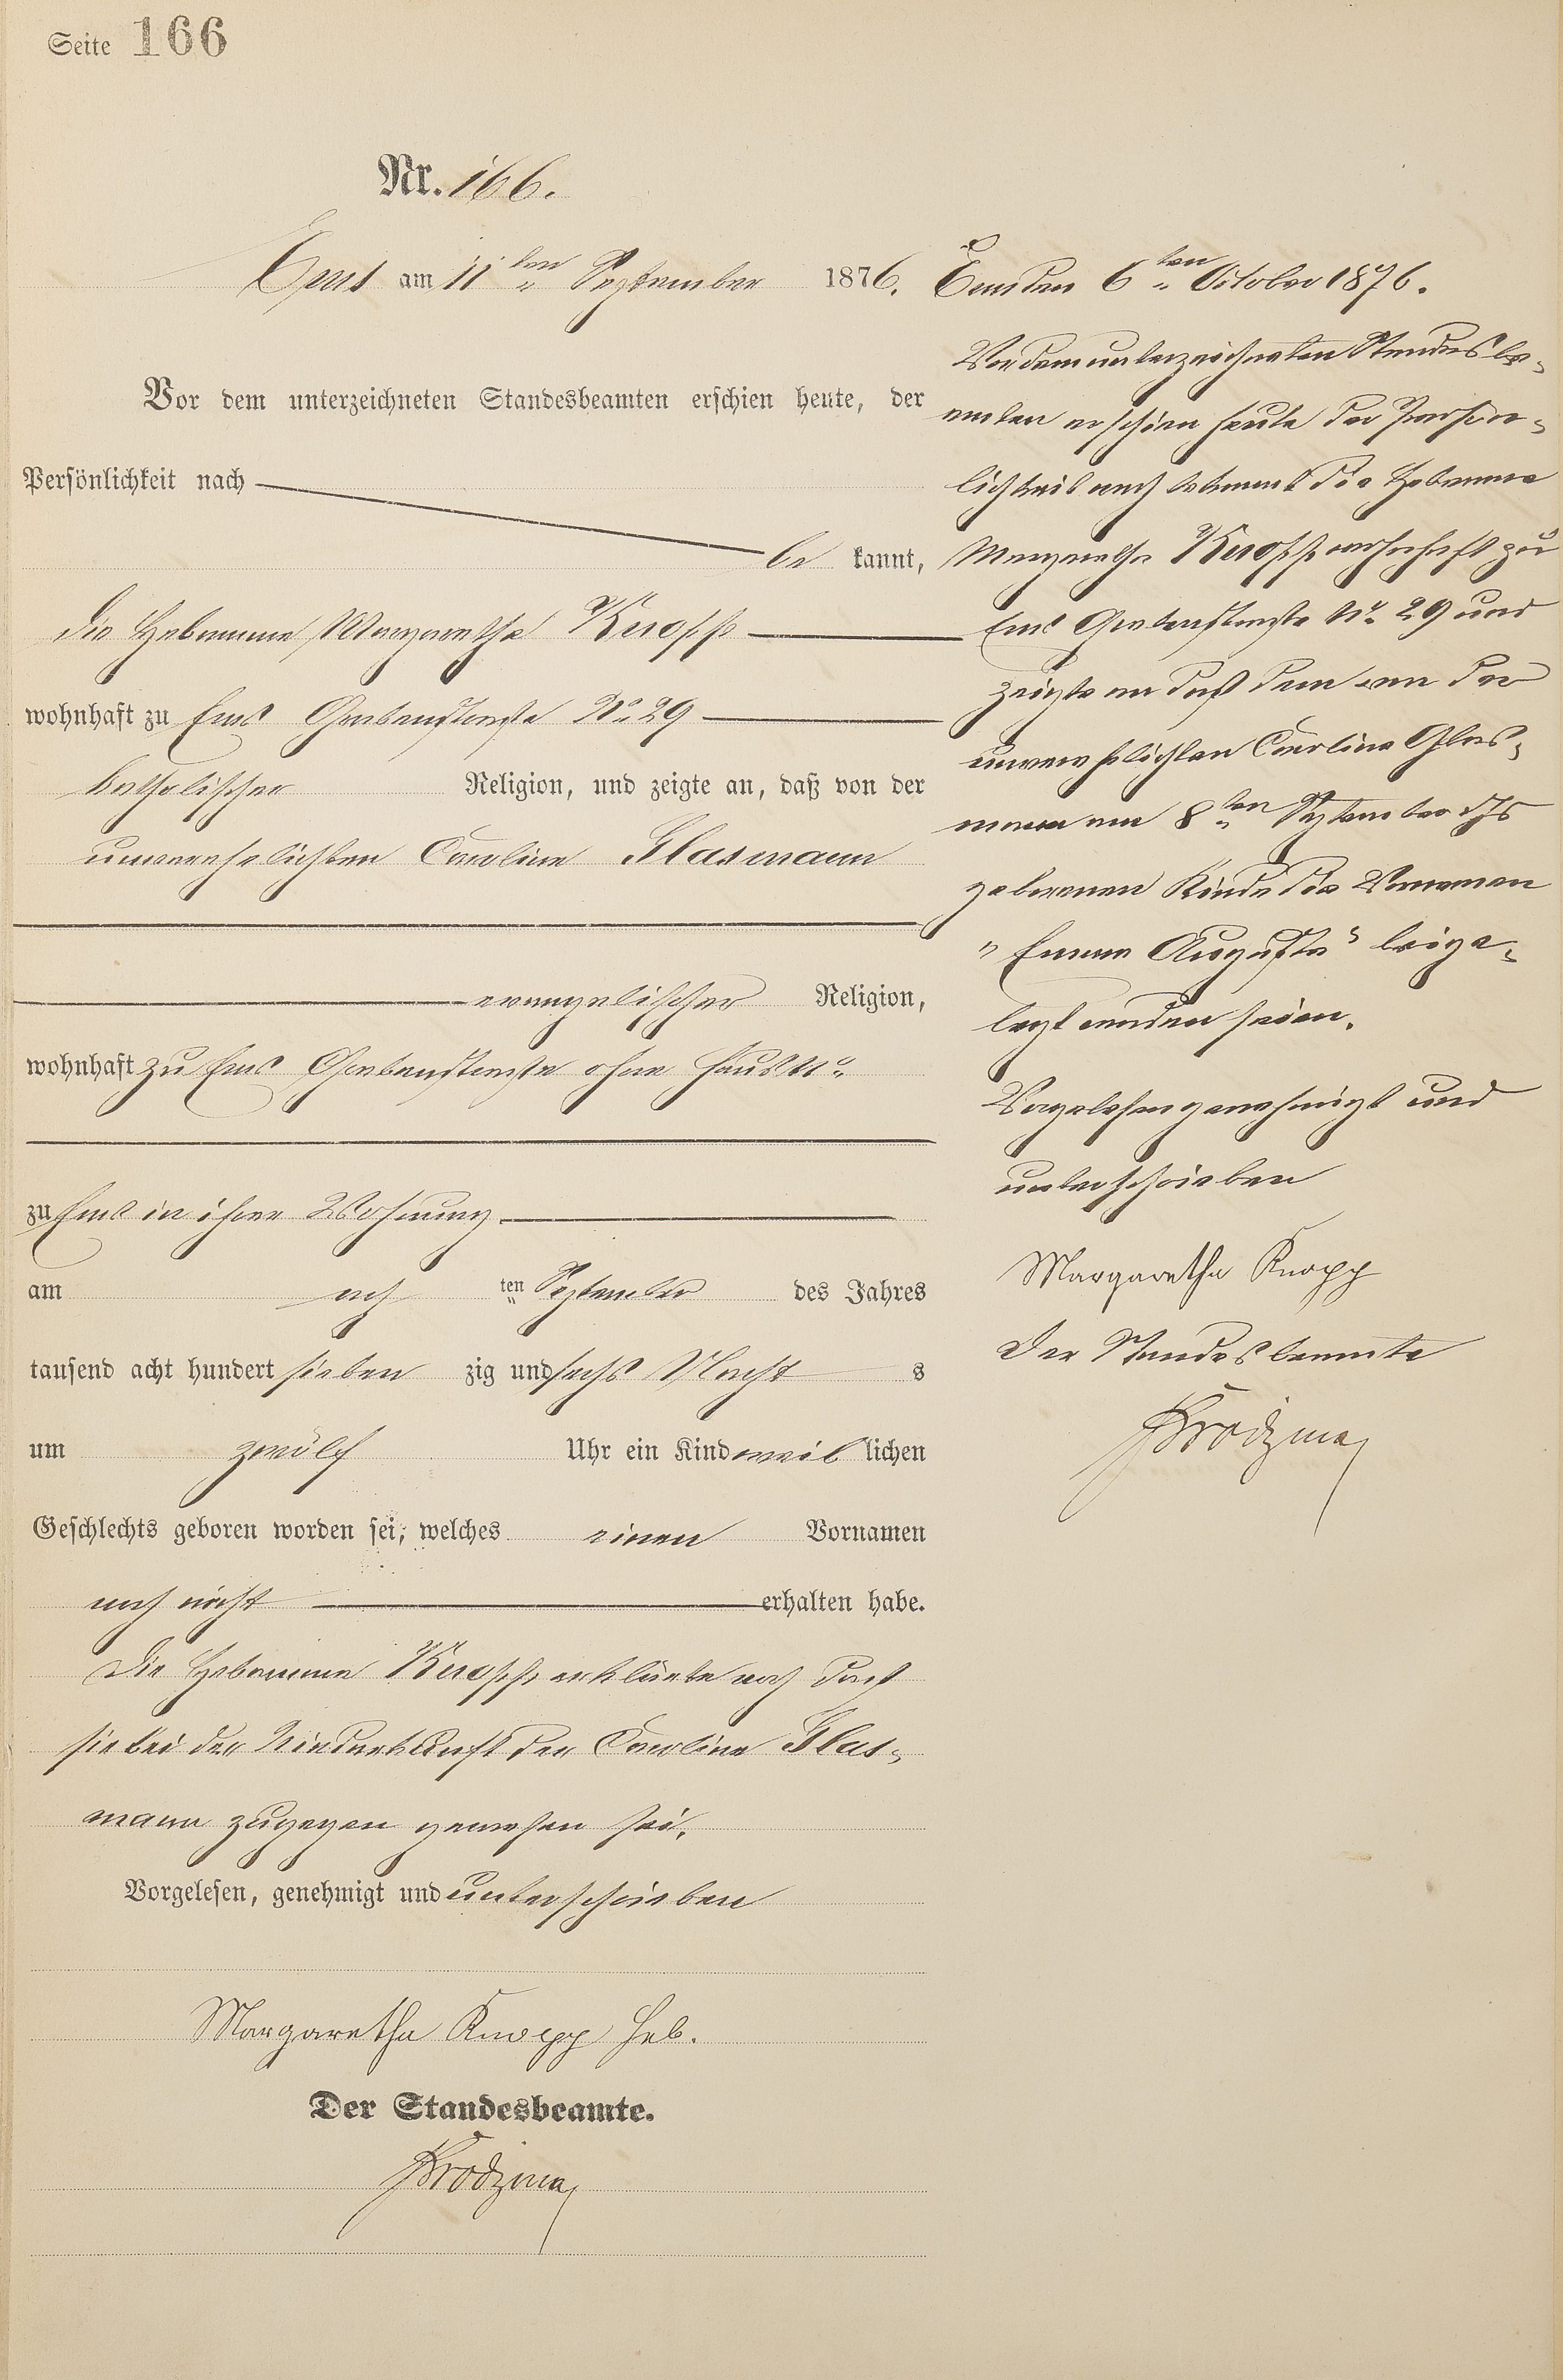 Seite 166
Nr. 166.
Ems am 11ten September 1876.
Vor dem unterzeichneten Standesbeamten erschien heute, der
Persönlichkeit nach
be kannt,
die Hebamme Margaretha Knopp
wohnhaft zu Ems Grabenstraße No 29
katholischer Religion, und zeigte an, daß von der
unverehelichten Caroline Glasmann
evangelischer Religion,
wohnhaft zu Ems Grabenstraße ohne Haus No
zu Ems in ihrer Wohnung
am acht ten September des Jahres
tausend acht hundert sieben zig und sechs Nacht s
um zwölf Uhr ein Kind weib lichen
Geschlechts geboren worden sei, welches einen Vornamen
noch nicht erhalten habe.
Die Hebamme Knopp erklärte noch daß
sie bei der Niederkunft der Caroline Glas-
mann zugegen gewesen sei.
Vorgelesen, genehmigt und unterschrieben
Margaretha Knopp Heb.
Der Standesbeamte.
Ems den 6ten October 1876.
Vor dem unterzeichneten Standesbe-
amten erschien heute der Persön-
lichkeit nach bekannt die Hebamme
Margaretha Knopp wohnhaft zu
Ems Grabenstraße No 29 und
zeigte an daß dem von der
unverehelichten Caroline Glas-
mann am 8ten September ds Js
geborenen Kinde die Vornamen
"Emma Augusta" beige-
legt worden seien.
Vorgelesen genehmigt und
unterschrieben
Margaretha Knopp
Der Standesbeamte